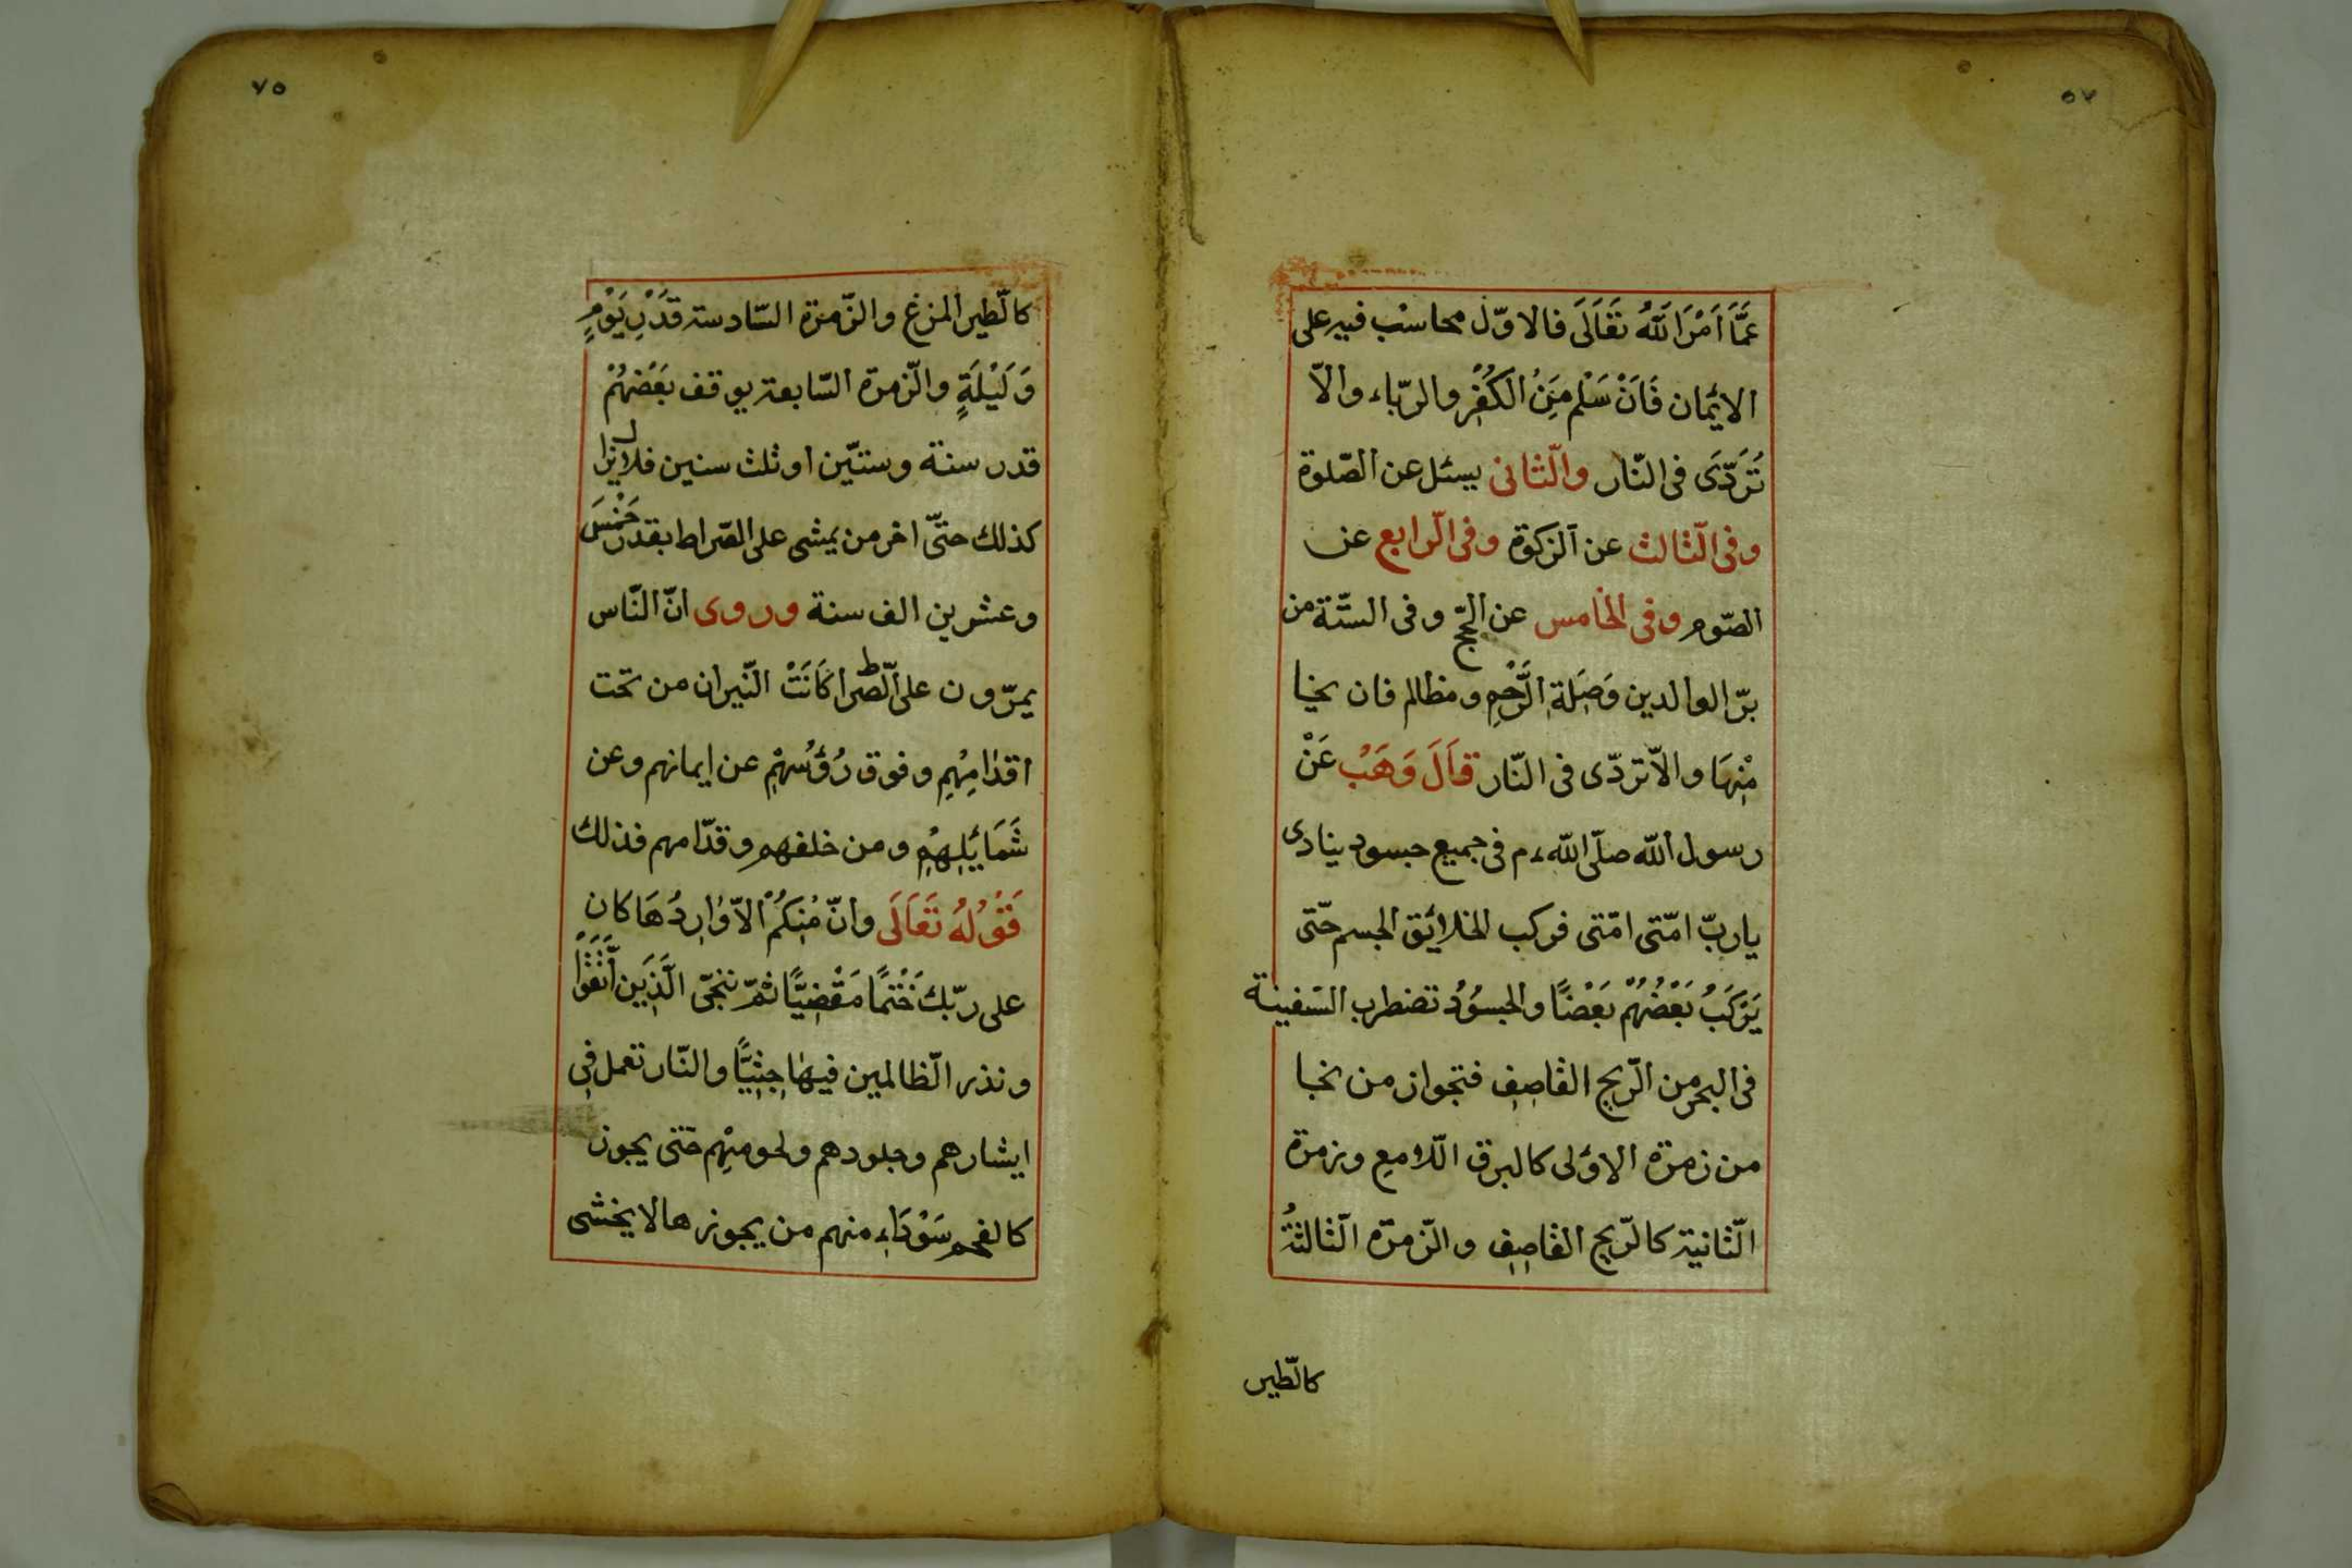 ٥٧
عَمَّا اَمَرَ اللّٰهُ تَعَالَى فالاوّل محاسب فيه على
الايمان فَاَنْ سَلْم مِنَ الْكُفْرِ والرّياء والاّ
تُرَدّى فى النّار والثّانى يسئل عن الصّلوة
وفى الثّالث عن الزكوة وفى الرّابع عن
الصّوم وفى الخامس عن الحجّ وفى الستّة من
برّ الوالدين وَصِلَةِ الرَّحِمِ ومظالم فان نجا
مِنْهَا والاّ تردّى فى النّار قَالَ وَهَبْ عَنْ
رسول اللّٰه صلّى اللّٰه ءم فى جميع جسود ينادى
يا ربّ امّتى امّتى فركب الخلائق الجسم حتّى
يَرْكَبُ بَعْضُهُمْ بَعْضًا والجسوُدُ تضطرب السّفينة
فى البحر من الرّيح القاصِفِ فتجواز من نجا
من زمرة الاؤلى كالبرق اللّامع وزمرة
الثّانية كالرّيح القاصِفِ والزّمرّه الثّالثةُ
كالطّير
٧٥
كالطّير المزغ والزّمرة السّادسة قَدْرِ يَوْمٍ
وَلَيْلَةٍ والزّمرة السّابعة يوقف بَعْضُهُمْ
قدر سنة وسنتيّن او ثلث سنين فلا يزال
كذلك حتّى اخر من يمشى على الصّراط بقدر خَمْسَ
وعشرين الف سنة وروى انّ النّاس
يمرّون على الصّراط كَانَتْ النّيران من تحت
اقدٰامِهِم وفوق رُؤُسهِمْ عن ايمانهم وعن
شَمَائلِهِمْ ومن خلفهم وقدّامهم فذلك
قَوْلُهُ تَعَالَى وانّ مِنكُمْ الاّ وٰارِدُهَا كان
على ربّك حَتْمًا مَقْضِيًّا ثمّ ننجّى الَّذِينَ اتَّقَوْا
ونذر الظّالمين فيهٰا جِثِيًّا والنّار تعمل فى
ابشارهم وجلودهم ولحومهِم حتّى يجوز
كالفحم سَوْدَاء منهم من يجوزها لا يخشى